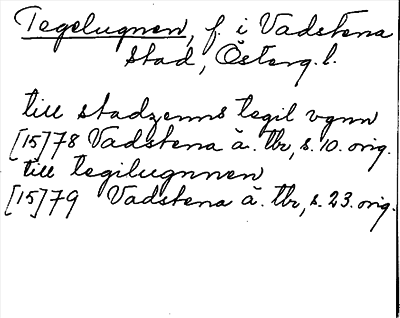 Tegelugnen, f. i Vadstena
stad, Österg.l.
till stadzenns tegil vgnn
[15]78 Vadstena ä. tbr, s. 10. orig.
till tegilugnnen
[15]79 Vadstena ä. tbr, s. 23. orig.